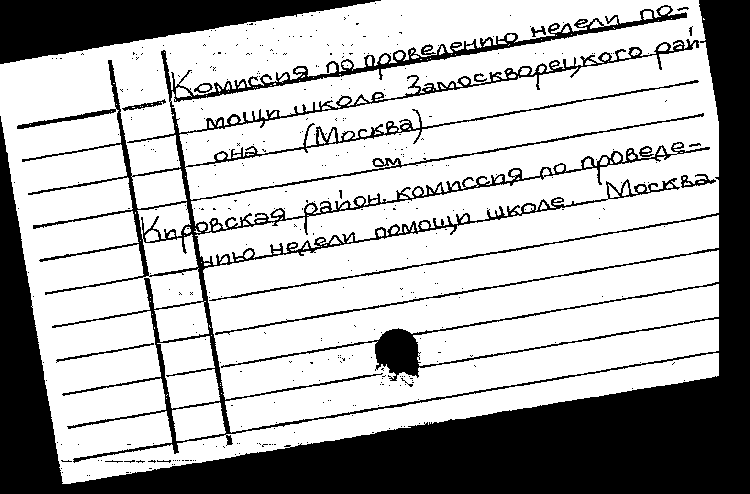 Комиссия по проведению недели по-
мощи школе Замоскворецкого рай-
она. (Москва)
см.
Кировская район. комиссия по проведе-
нию недели помощи школе. Москва.